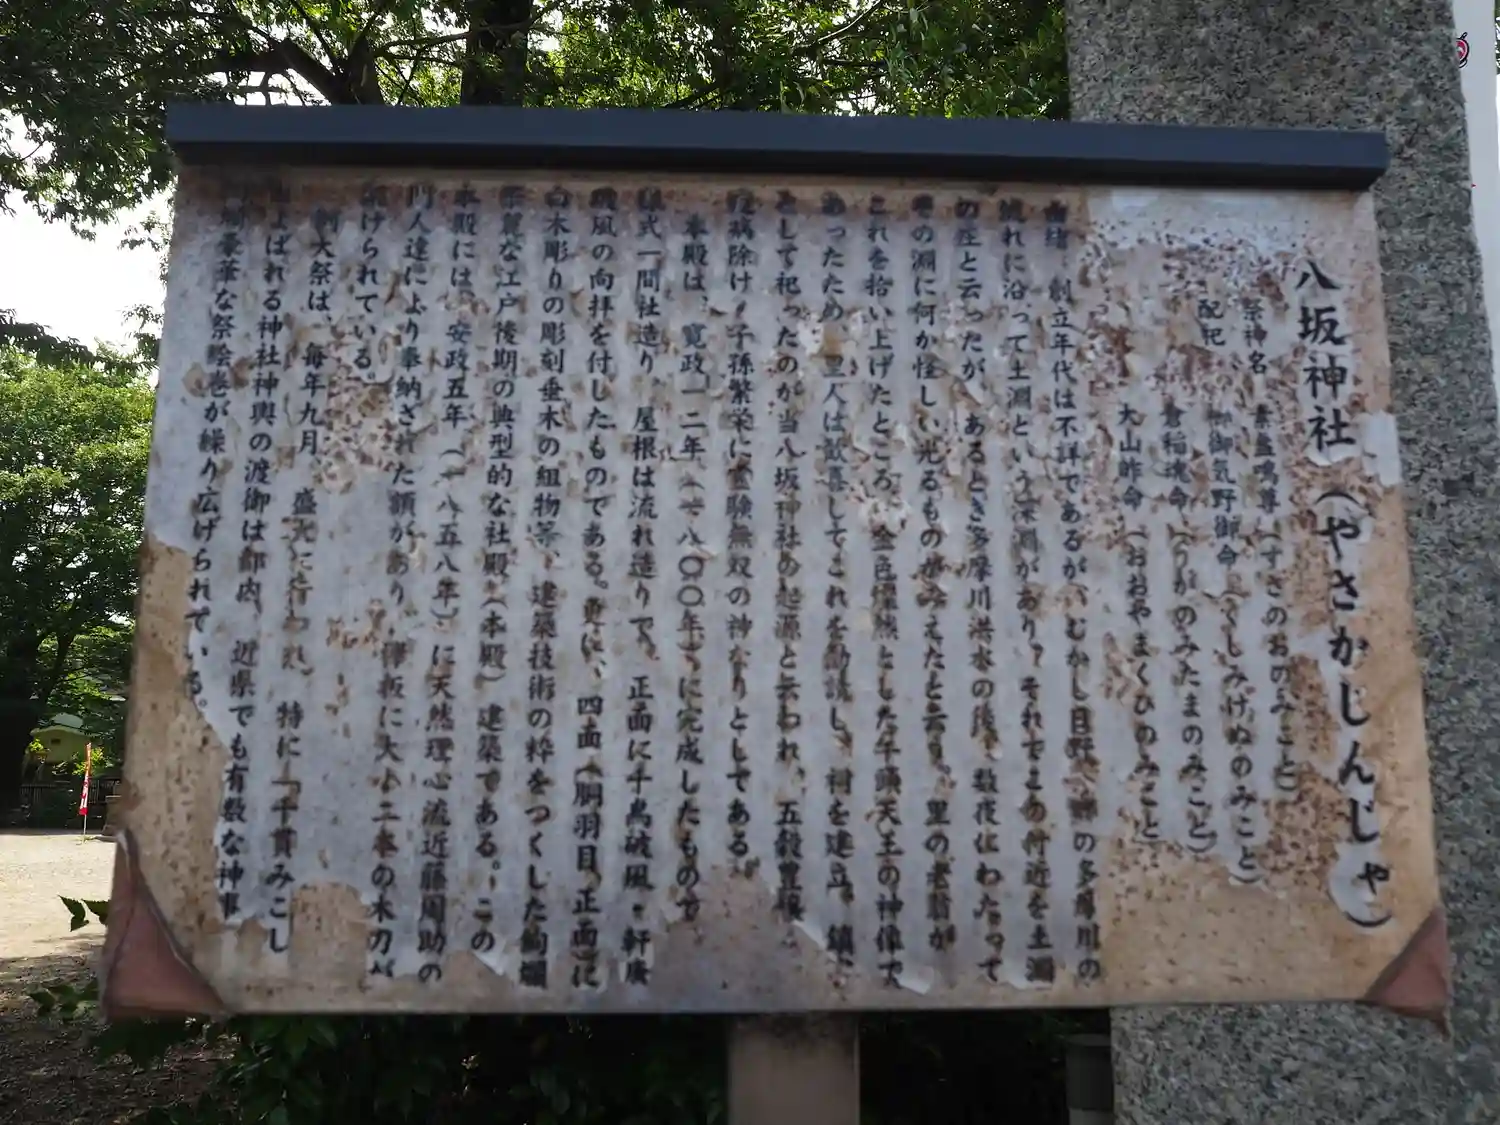 八坂神社（やさかじんじゃ）
祭神名 素盞鳴尊（すさのおのみこと）
配祀 御御気野御命（くしみけぬのみこと）
倉稲魂命（うがのみたまのみこと）
大山昨命（おおやまくひのみこと）
由緒 創立年代は不詳であるが、むかし日野 の多摩川の
流れに沿って土淵という深淵があり、それでこの付近を土淵
の庄と云ったが、あるとき多摩川洪水の後、数夜にわたって
その淵に何か怪しい光るものがみえたと云う。里の老翁が
これを拾い上げたところ、金色燦然とした牛頭天王の神像で
あったため、里人は歓喜してこれを勧請し、祠を建立、鎮守
として祀ったのが当八坂神社の起源と云われ、五穀豊穣
疫病除け、子孫繁栄に霊験無双の神なりとしてある。
本殿は、寛政一二年（一八〇〇年）に完成したもので
様式一間社造り、屋根は流れ造りで、正面に千鳥破風・軒唐
破風の向拝を付したものである。更に、四面（胴羽目、正面）に
白木彫りの彫刻垂木の組物等、建築技術の粋をつくした絢爛
華麗な江戸後期の典型的な社殿（本殿）建築である。この
本殿には、安政五年（一八五八年）に天然理心流近藤周助の
門人達により奉納された額があり、欅板に大小二本の木刀が
掛けられている。
例大祭は、毎年九月、盛大に行われ、特に「千貫みこし」
よばれる神社神輿の渡御は都内、近県でも有数な神事
豪華な祭絵巻が繰り広げられている。